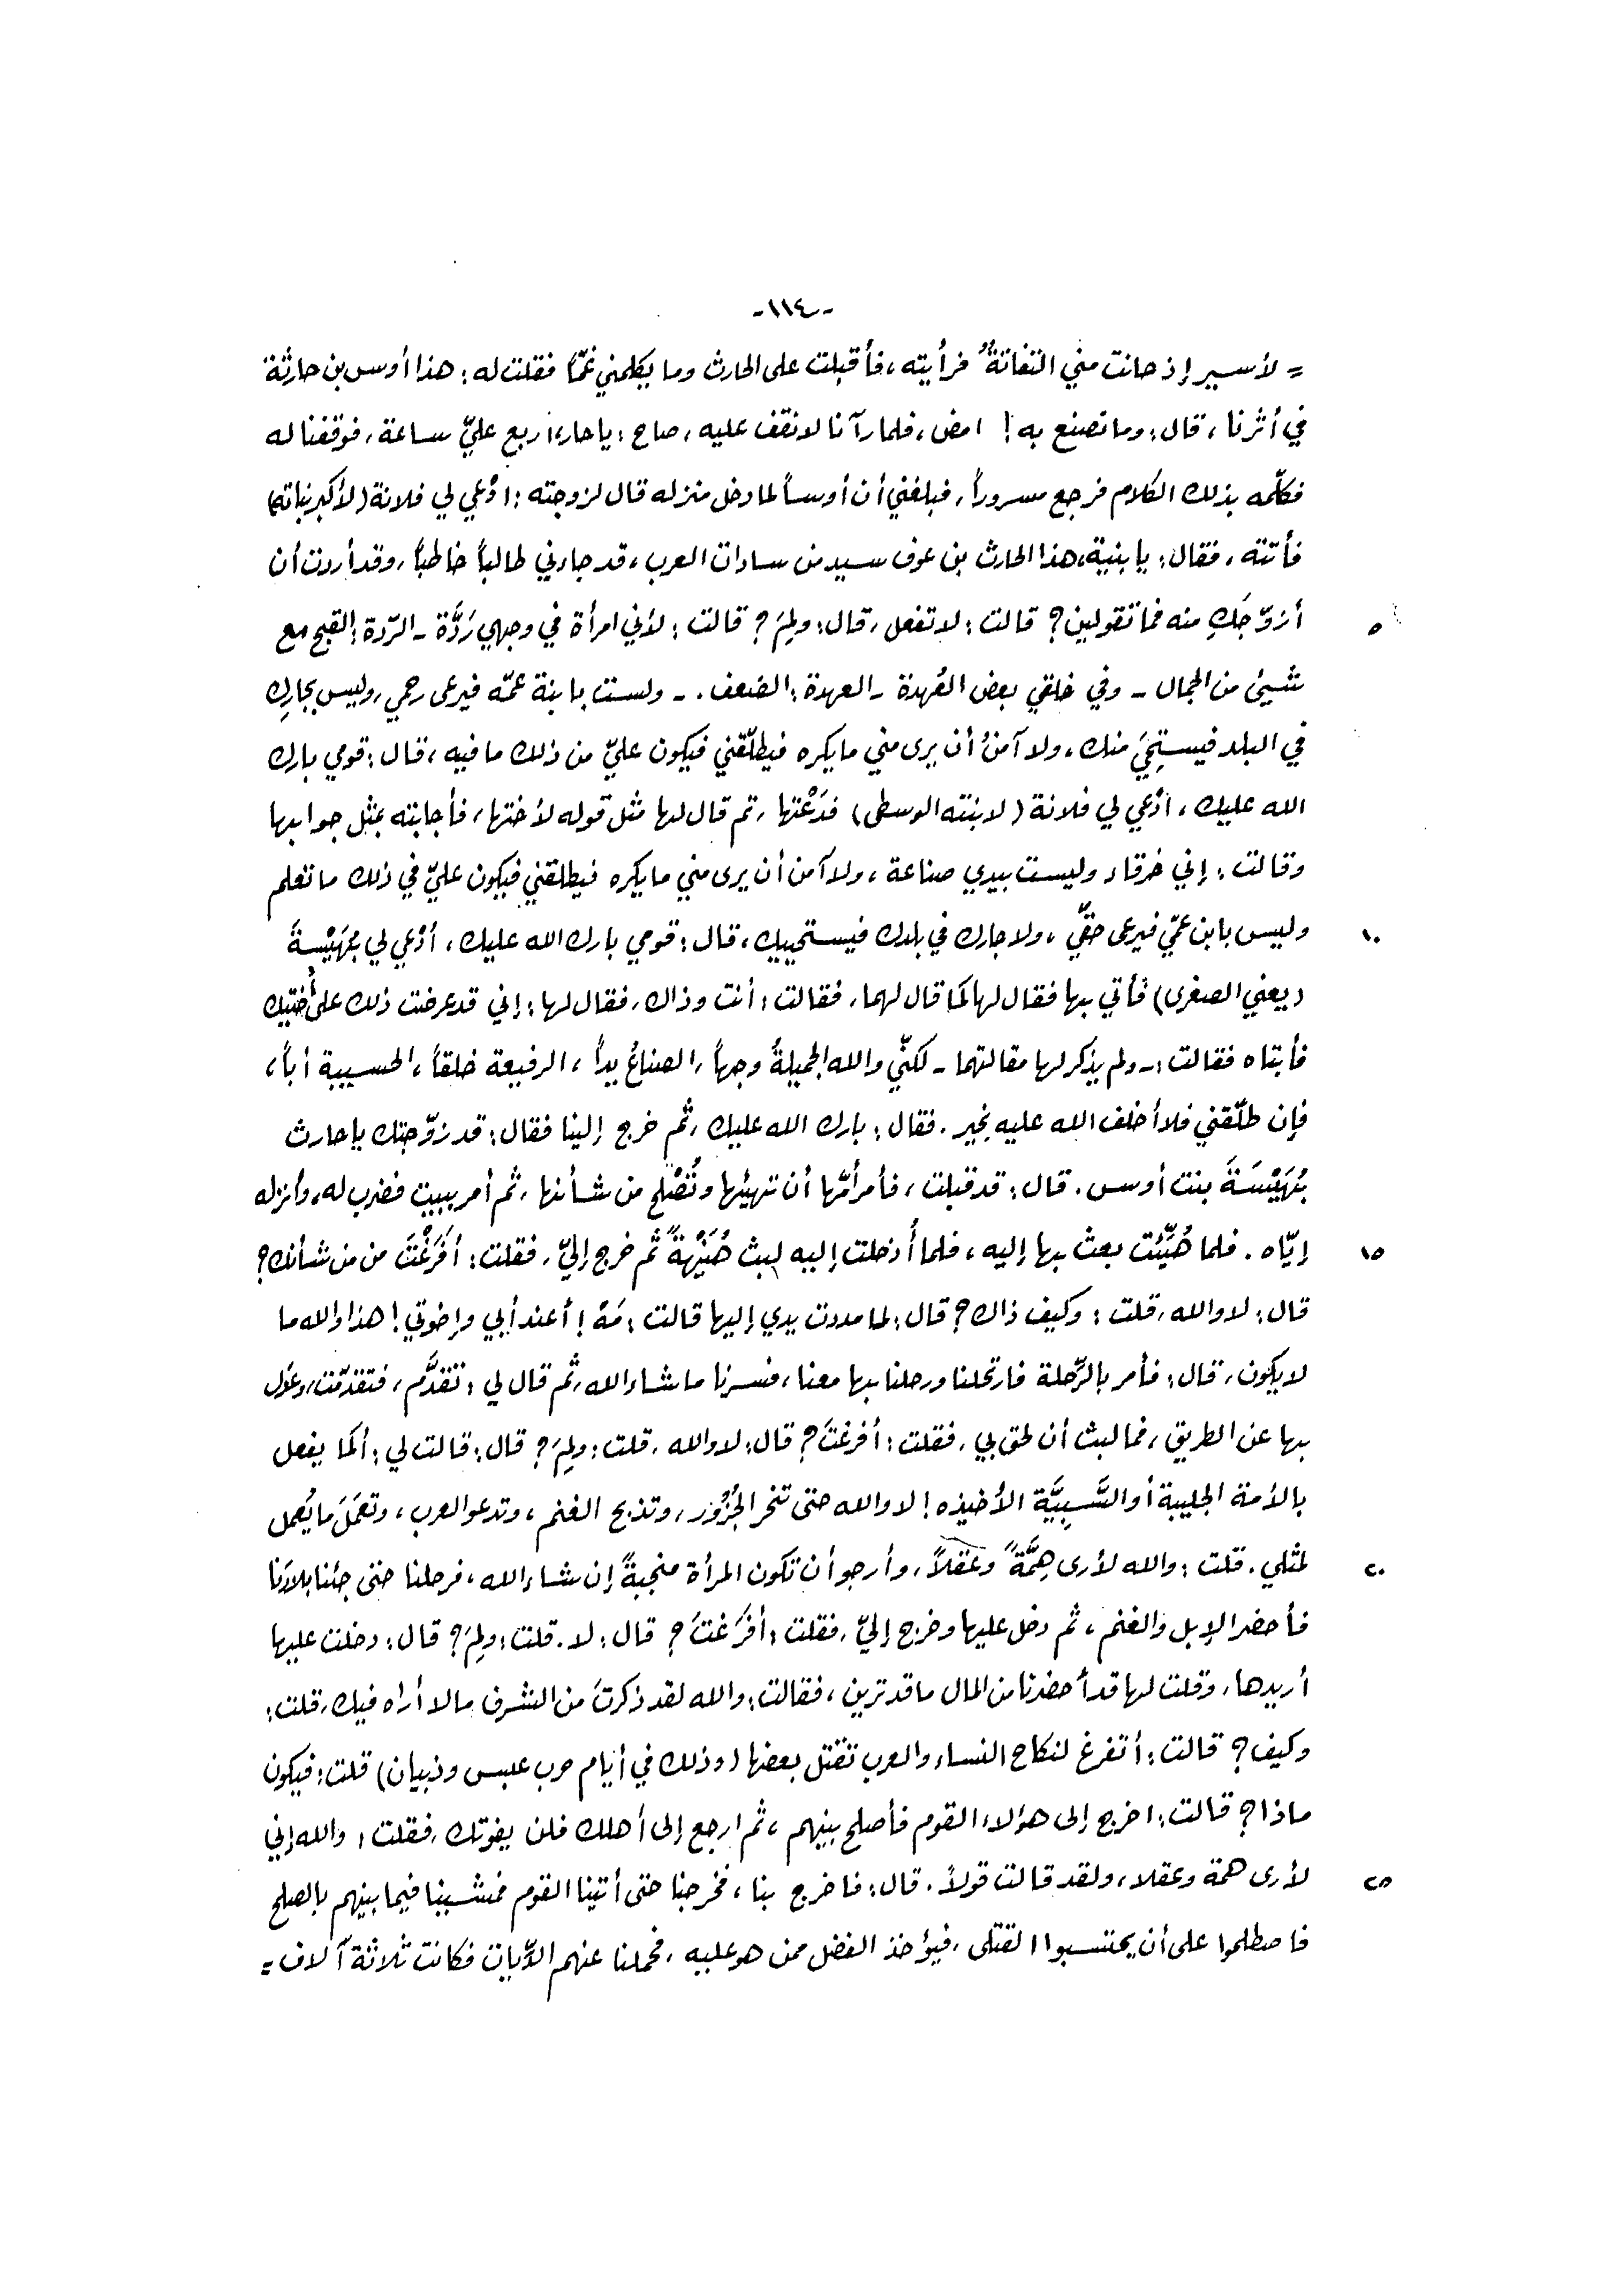 -١١٤-
= لأسير إذ حانت مني التفاتةٌ فرأيته، فأقبلت على الحارث وما يكلمني غمّاً فقلت له: هذا أوس بن حارثة
في أثرنا، قال: وما تصنع به! امض، فلما رآنا لا نقف عليه، صاح: يا حار، اربع عليّ ساعة، فوقفنا له
فكلّمه بذلك الكلام فرجع مسروراً، فبلغني أن أوساً لما دخل منزله قال لزوجته: ادْعي لي فلانة (لأكبر بناته)
فأتته، فقال: يا بنية، هذا الحارث بن عوف سيد من سادات العرب، قد جاءني طالباً خاطباً، وقد أردت أن
٥ أزوّجَكِ منه فما تقولين؟ قالت: لا تفعل، قال: ولِمَ؟ قالت: لأني امرأة في وجهي رَدَّة - الرّدة: القبح مع
شيئ من الجمال - وفي خلقي بعض العُهدة - العهدة: الضعف. - ولست بابنة عمّه فيرعى رحمي، وليس بجارِك
في البلد فيستحِيَ منك، ولا آمنُ أن يرى مني ما يكره فيطلّقني فيكون عليّ من ذلك ما فيه، قال: قومي بارك
الله عليك، ادْعي لي فلانة (لابنته الوسطى) فدَعْتها، ثم قال لها مثل قوله لأختها، فأجابته بمثل جوابها
وقالت: إني خرقاء وليست بيدي صناعة، ولا آمن أن يرى مني ما يكره فيطلقني فيكون عليّ في ذلك ما تعلم
١٠ وليس بابن عمّي فيرعى حقّي، ولا جارك في بلدك فيستحييك، قال: قومي بارك الله عليك، أدْعي لي بُهَيْسةَ
(يعني الصغرى) فأتي بها فقال لها كما قال لهما، فقالت: أنت وذاك، فقال لها: إني قد عرضت ذلك على أُختيك
فأبتاه فقالت: - ولم يذكر لها مقالتهما - لكنّي والله الجميلةُ وجهاً، الصناعُ يداً، الرفيعة خلقاً، الحسيبة أباً،
فإن طلّقني فلا أخلف الله عليه بخير. فقال: بارك الله عليك، ثم خرج إلينا فقال: قد زوّجتك يا حارث
بُهَيْسَةَ بنت أوس. قال: قد قبلت، فأمر أمّها أن تهيئها وتُصْلح من شأنها، ثم أمر ببيت فضرب له، وأنزله
١٥ إيّاه. فلما هُيِّئت بعث بها إليه، فلما أُدخلت إليه لبث هُنَيْهةً ثم خرج إليّ، فقلت: أفَرَغْتَ من من شأنك؟
قال: لا والله، قلت: وكيف ذاك؟ قال: لما مددت يدي إليها قالت: مَهْ! أعند أبي وإخوتي! هذا والله ما
لا يكون، قال: فأمر بالرِّحلة فارتحلنا ورحلنا بها معنا، فسرنا ما شاء الله، ثم قال لي: تقدَّم، فتقدّمت، وعَدَل
بها عن الطريق، فما لبث أن لحق بي، فقلت: أفرغتَ؟ قال: لا والله، قلت: ولِمَ؟ قال: قالت لي: أكما يفعل
بالأمة الجليبة أو السَّبِيَّة الأخيذه! لا والله حتى تنحر الجُزُور، وتذبح الغنم، وتدعو العرب، وتعمَلَ ما يُعمل
٢٠ لمثلي. قلت: والله لأرى هِمَّةً وعقلاً، وأرجو أن تكون المرأة منجبةً إن شاء الله، فرحلنا حتى جئنا بلادَنا
فأحضر الإبل والغنم، ثم دخل عليها وخرج إليّ، فقلت: أفَرَغتَ؟ قال: لا. قلت: ولِمَ؟ قال: دخلت عليها
أريدها، وقلت لها قد أحضرنا من المال ما قد ترين، فقالت: والله لقد ذكرتَ من الشرف مالا أراه فيك، قلت:
وكيف؟ قالت: أتفرغ لنكاح النساء والعرب تقتل بعضها (وذلك في أيام حرب عبس وذبيان) قلت: فيكون
ماذا؟ قالت: اخرج إلى هؤلاء القوم فأصلح بينهم، ثم ارجع إلى أهلك فلن يفوتك، فقلت: والله إني
٢٥ لأرى همة وعقلا، ولقد قالت قولاً. قال: فاخرج بنا، فخرجنا حتى أتينا القوم فمشينا فيما بينهم بالصلح
فاصطلحوا على أن يحتسبوا القتلى، فيؤخذ الفضل ممن هو عليه، فحملنا عنهم الدِّيات فكانت ثلاثة آلاف =